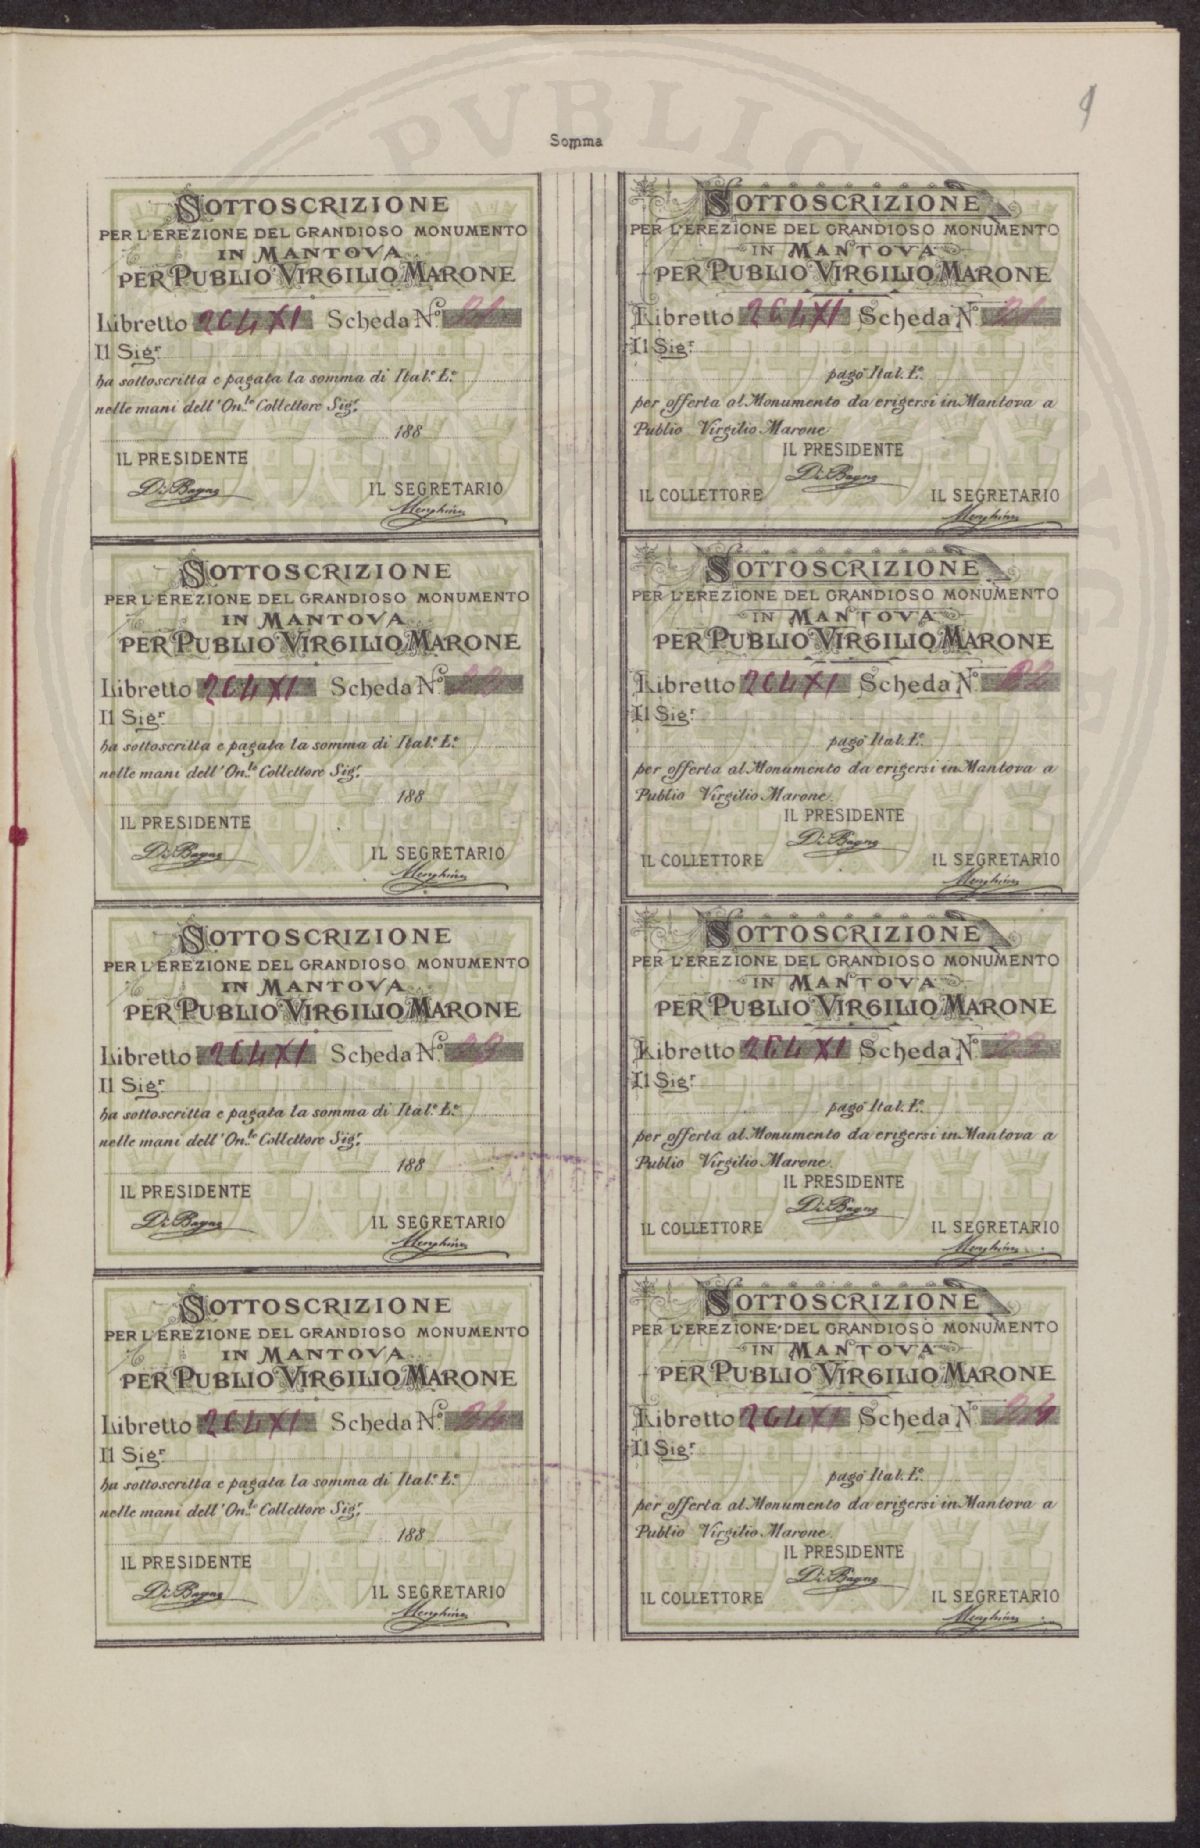 PVBLIC
9
Somma
SOTTOSCRIZIONE
PER L'EREZIONE DEL GRANDIOSO MONUMENTO
IN MANTOVA
PER PUBLIO VIRGILIO MARONE
Libretto 264 XI Scheda N.º 21
Il Sig.r
ha sottoscritta e pagata la somma di Ital.e L.e
nelle mani dell'On.le Collettore Sig.r
188
IL PRESIDENTE
Di Bagno
IL SEGRETARIO
Menghini
SOTTOSCRIZIONE
PER L'EREZIONE DEL GRANDIOSO MONUMENTO
IN MANTOVA
PER PUBLIO VIRGILIO MARONE
Libretto 264 XI Scheda N.º 21
Il Sig.r
pagò Ital. L.e
per offerta al Monumento da erigersi in Mantova a
Publio Virgilio Marone.
IL PRESIDENTE
Di Bagno
IL COLLETTORE IL SEGRETARIO
Menghini
SOTTOSCRIZIONE
PER L'EREZIONE DEL GRANDIOSO MONUMENTO
IN MANTOVA
PER PUBLIO VIRGILIO MARONE
Libretto 264 XI Scheda N.º 22
Il Sig.r
ha sottoscritta e pagata la somma di Ital.e L.e
nelle mani dell'On.le Collettore Sig.r
188
IL PRESIDENTE
Di Bagno
IL SEGRETARIO
Menghini
SOTTOSCRIZIONE
PER L'EREZIONE DEL GRANDIOSO MONUMENTO
IN MANTOVA
PER PUBLIO VIRGILIO MARONE
Libretto 264 XI Scheda N.º 22
Il Sig.r
pagò Ital. L.e
per offerta al Monumento da erigersi in Mantova a
Publio Virgilio Marone.
IL PRESIDENTE
Di Bagno
IL COLLETTORE IL SEGRETARIO
Menghini
SOTTOSCRIZIONE
PER L'EREZIONE DEL GRANDIOSO MONUMENTO
IN MANTOVA
PER PUBLIO VIRGILIO MARONE
Libretto 264 XI Scheda N.º 23
Il Sig.r
ha sottoscritta e pagata la somma di Ital.e L.e
nelle mani dell'On.le Collettore Sig.r
188
IL PRESIDENTE
Di Bagno
IL SEGRETARIO
Menghini
SOTTOSCRIZIONE
PER L'EREZIONE DEL GRANDIOSO MONUMENTO
IN MANTOVA
PER PUBLIO VIRGILIO MARONE
Libretto 264 XI Scheda N.º 23
Il Sig.r
pagò Ital. L.e
per offerta al Monumento da erigersi in Mantova a
Publio Virgilio Marone.
IL PRESIDENTE
Di Bagno
IL COLLETTORE IL SEGRETARIO
Menghini
SOTTOSCRIZIONE
PER L'EREZIONE DEL GRANDIOSO MONUMENTO
IN MANTOVA
PER PUBLIO VIRGILIO MARONE
Libretto 264 XI Scheda N.º 24
Il Sig.r
ha sottoscritta e pagata la somma di Ital.e L.e
nelle mani dell'On.le Collettore Sig.r
188
IL PRESIDENTE
Di Bagno
IL SEGRETARIO
Menghini
SOTTOSCRIZIONE
PER L'EREZIONE DEL GRANDIOSO MONUMENTO
IN MANTOVA
PER PUBLIO VIRGILIO MARONE
Libretto 264 XI Scheda N.º 24
Il Sig.r
pagò Ital. L.e
per offerta al Monumento da erigersi in Mantova a
Publio Virgilio Marone.
IL PRESIDENTE
Di Bagno
IL COLLETTORE IL SEGRETARIO
Menghini